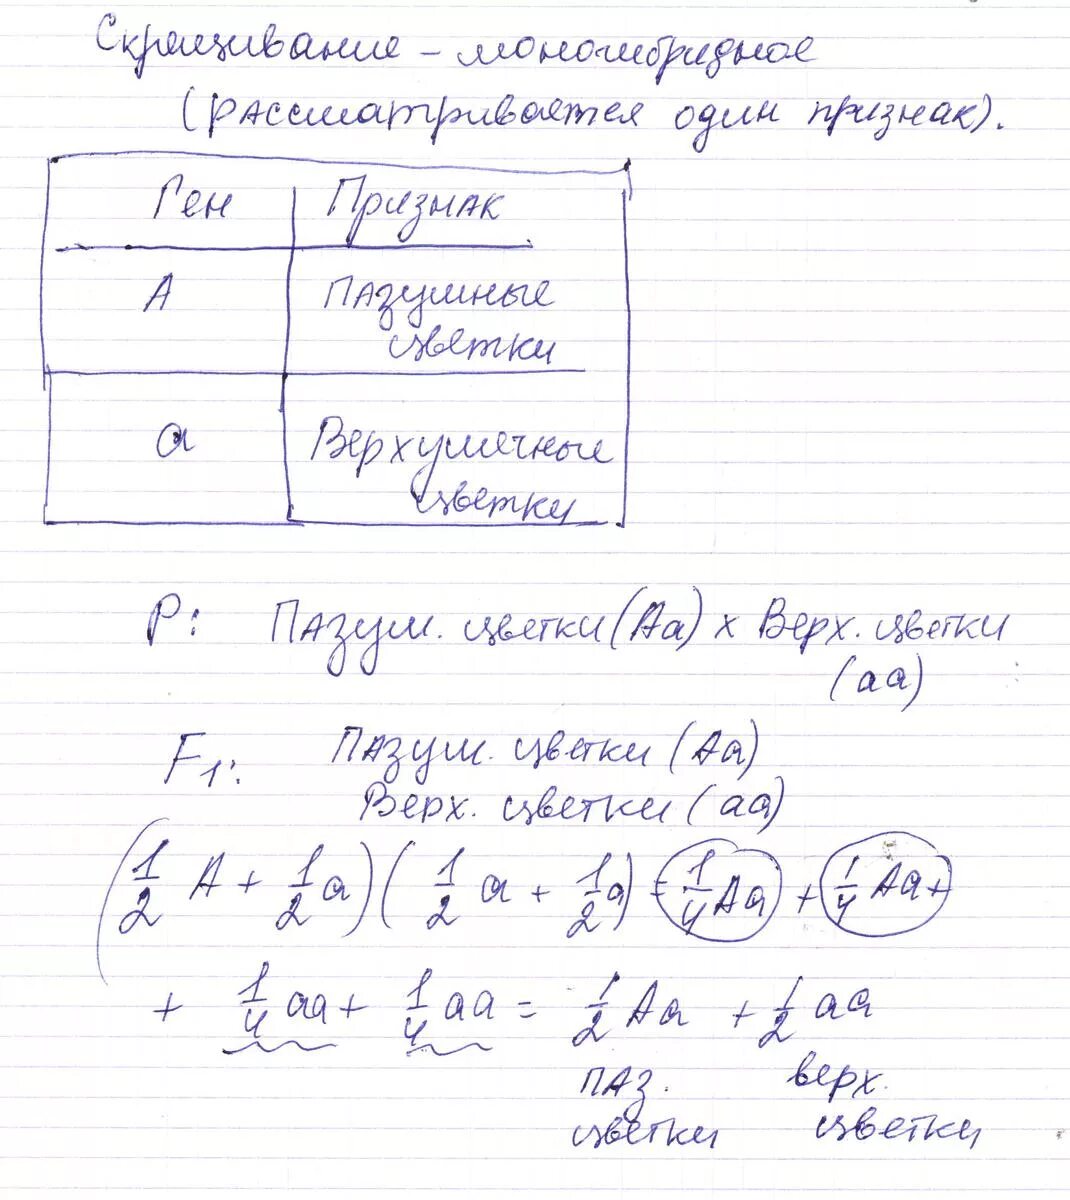 Скрещивание – моногибридное
(рассматривается один признак).
Ген Признак
А пазушные
цветки
а Верхушечные
цветки
P: Пазуш. цветки (Аа) х Верх. цветки
(аа)
F1: Пазуш. цветки (Аа)
Верх. цветки (аа)
(1/2 А + 1/2 а) (1/2 а + 1/2 а) = 1/4 Аа + 1/4 Аа +
+ 1/4 аа + 1/4 аа = 1/2 Аа + 1/2 аа
паз. верх.
цветки цветки